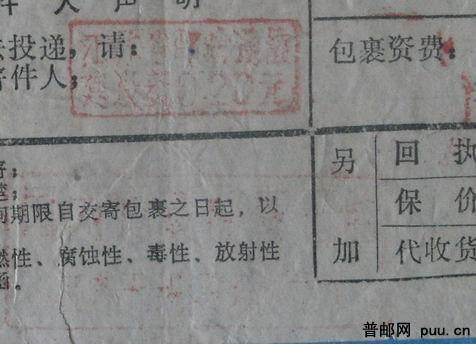 件人声明
去投递，请：
寄件人；
包裹资费：
期限自交寄包裹之日起，以
燃性、腐蚀性、毒性、放射性
另加
回执
保价
代收货
普邮网 puu.cn